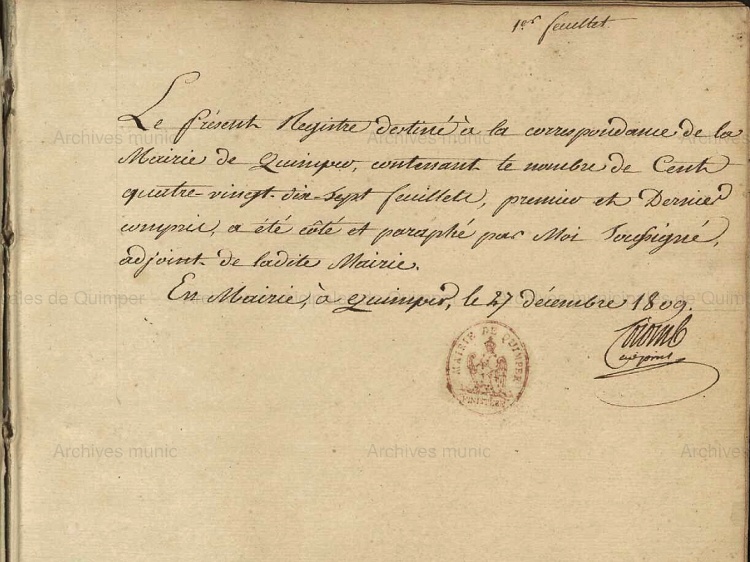 1er feuillet.
Le présent Registre destiné à la correspondance de la
Mairie de Quimper, contenant le nombre de Cent
quatre-vingt-dix-Sept feuillets, premier et Dernier
compris, a été côté et paraphé par Moi Soussigné,
adjoint de ladite Mairie.
En Mairie, à Quimper, le 27 décembre 1809.
adjoint
MAIRIE DE QUIMPER
Archives munic
Archives munic
Archives munic
ales de Quimper
Archives munic
Archives munic
Archives munic